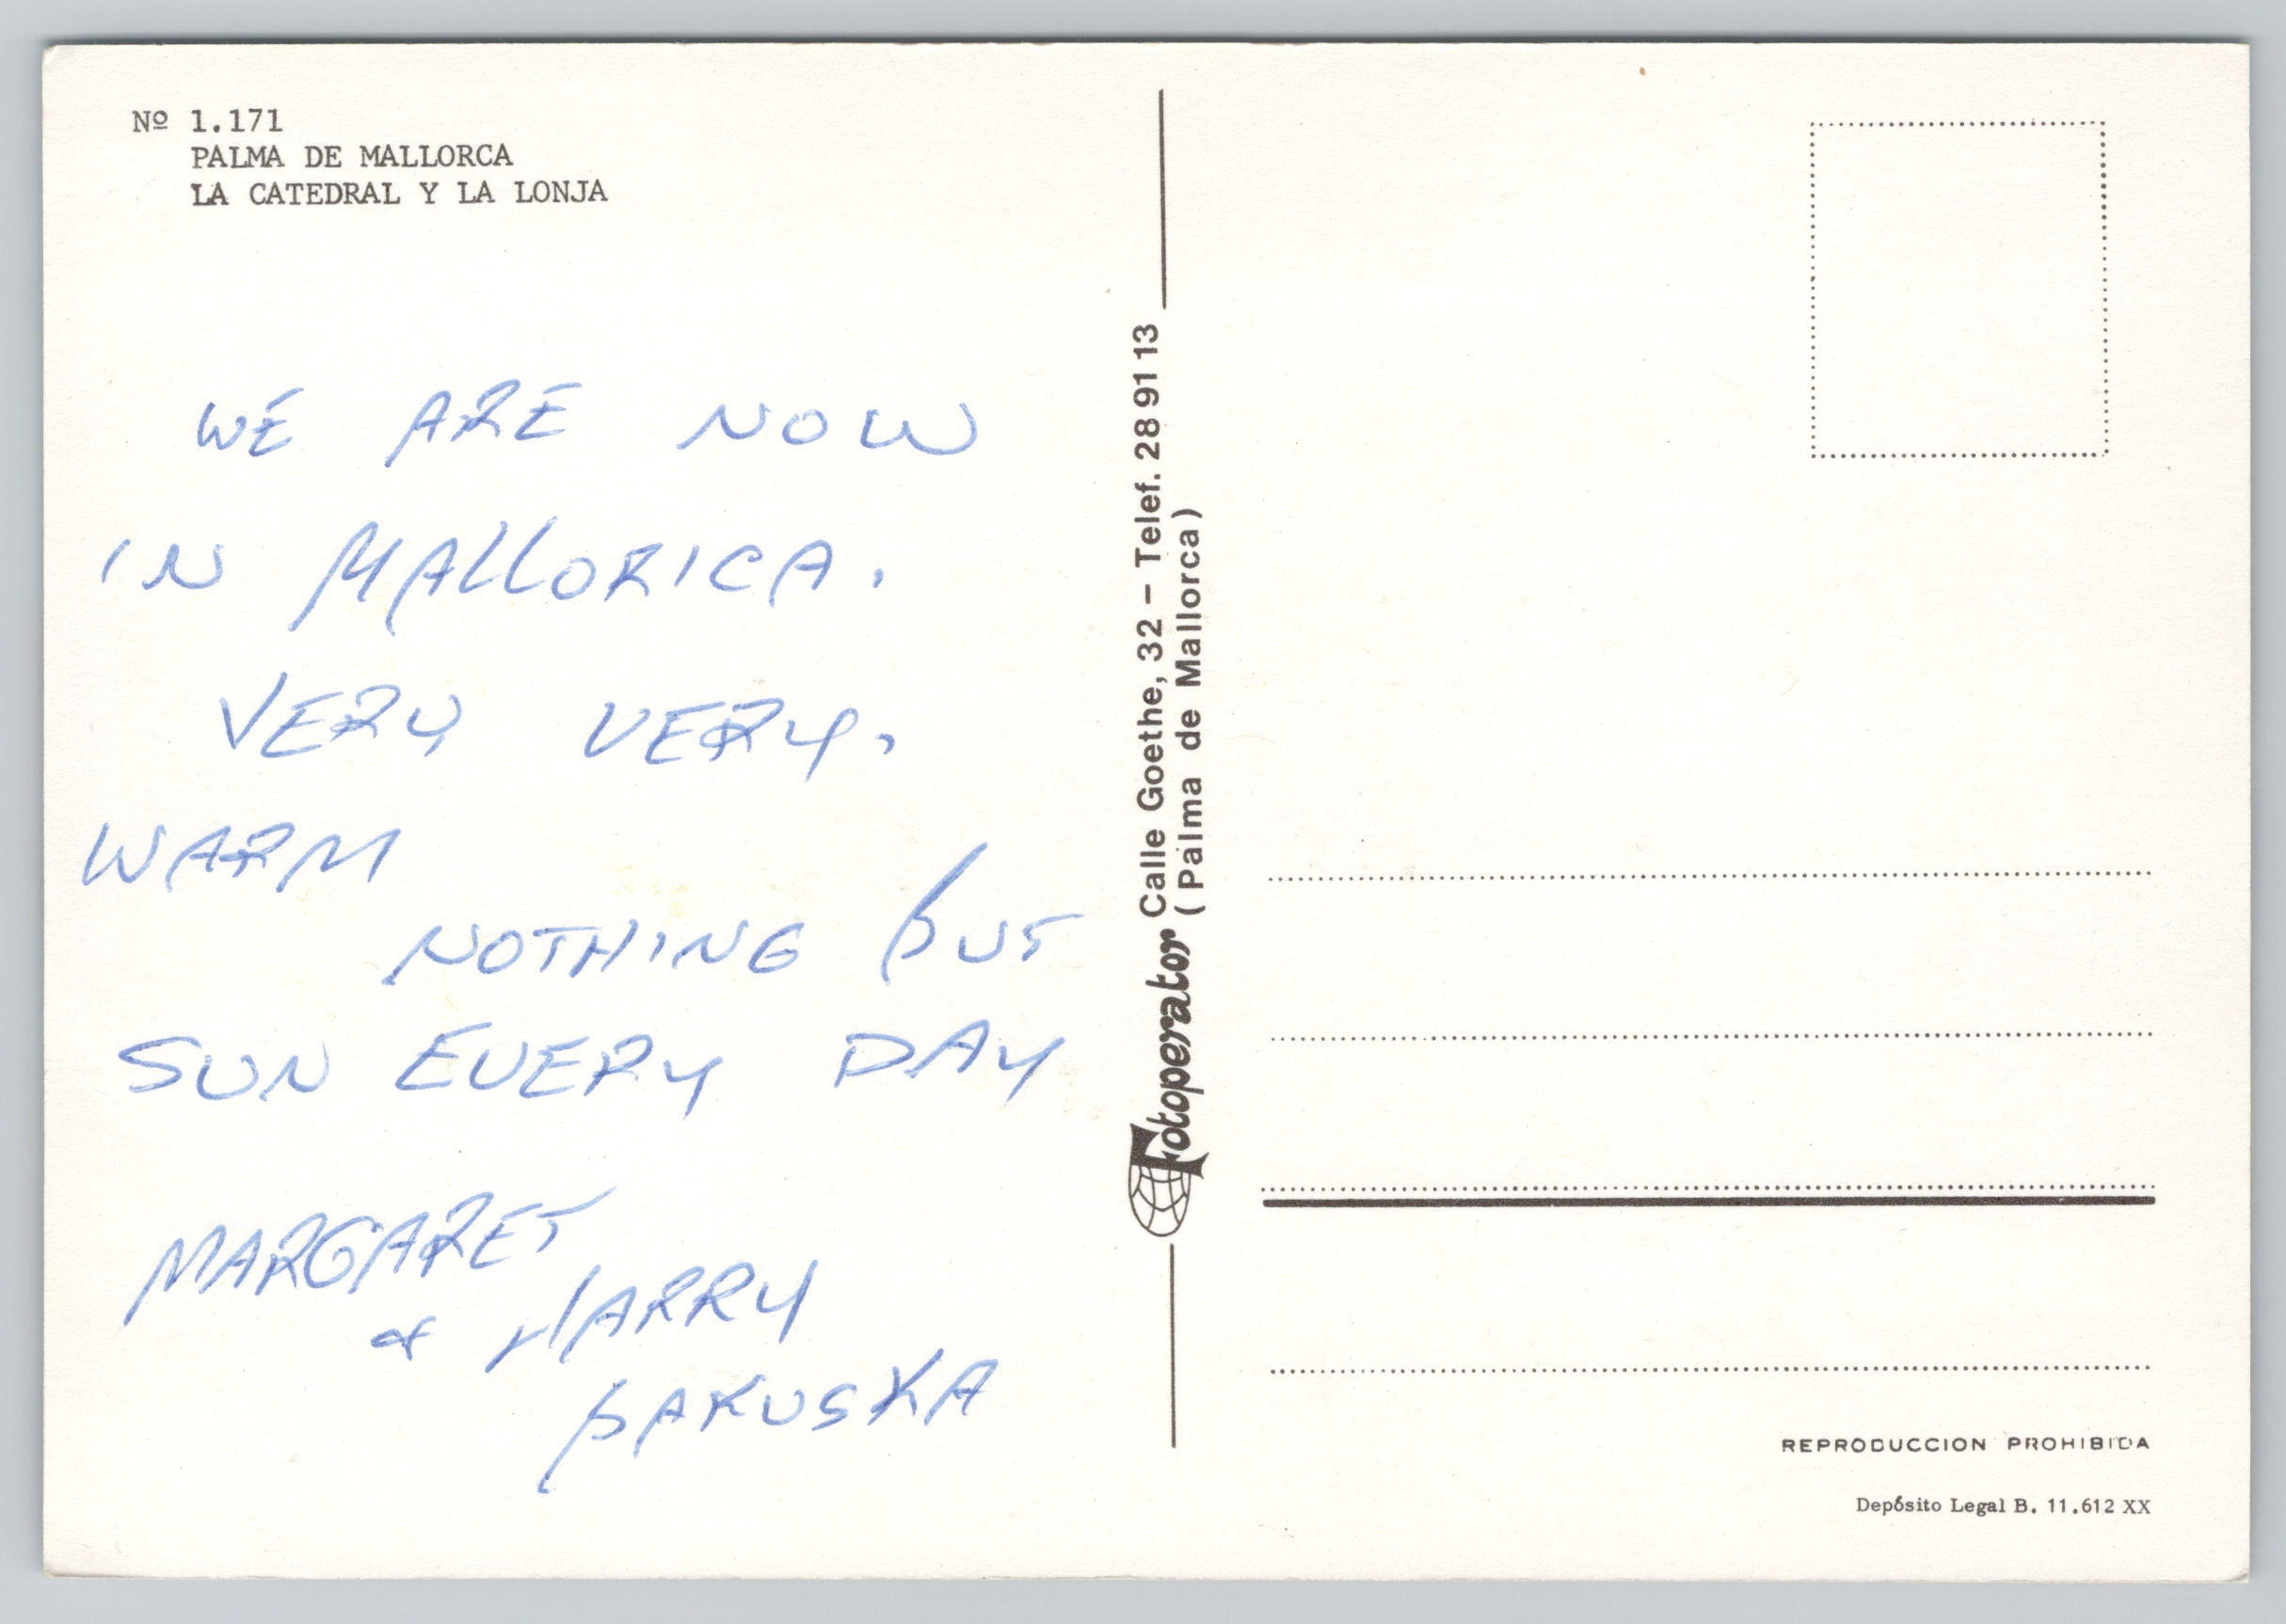 Nº 1.171
PALMA DE MALLORCA
LA CATEDRAL Y LA LONJA
WE ARE NOW
IN MALLORICA.
VERY VERY.
WARM
NOTHING BUT
SUN EVERY DAY
MARGARET
& HARRY
BAKUSKA
Fotoperator Calle Goethe, 32 - Telef. 28 91 13
(Palma de Mallorca)
REPRODUCCION PROHIBIDA
Depósito Legal B. 11.612 XX